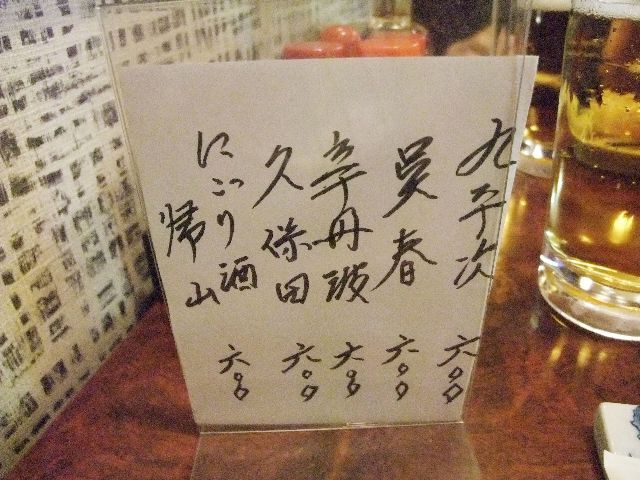 九平次 六〇〇
呉春 六〇〇
辛丹波 六〇〇
久保田 六〇〇
にごり酒 六〇〇
帰山